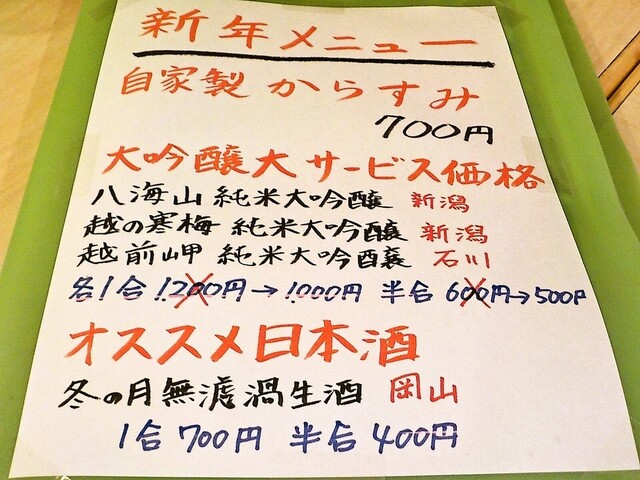 新年メニュー
自家製からすみ
700円
大吟醸大サービス価格
八海山 純米大吟醸 新潟
越の寒梅 純米大吟醸 新潟
越前岬 純米大吟醸 石川
各1合 1200円→1000円 半合 600円→500円
オススメ日本酒
冬の月無濾過生酒 岡山
1合 700円 半合 400円